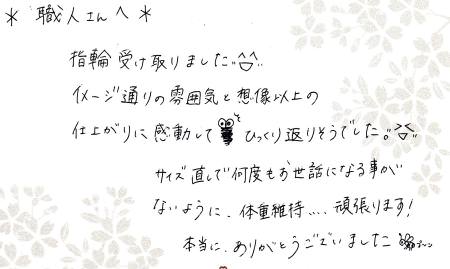 ＊ 職人さんへ ＊
指輪受け取りました
イメージ通りの雰囲気と想像以上の
仕上がりに感動して ひっくり返りそうでした。
サイズ直しで何度もお世話になる事が
ないように、体重維持…、頑張ります!
本当に、ありがとうございました